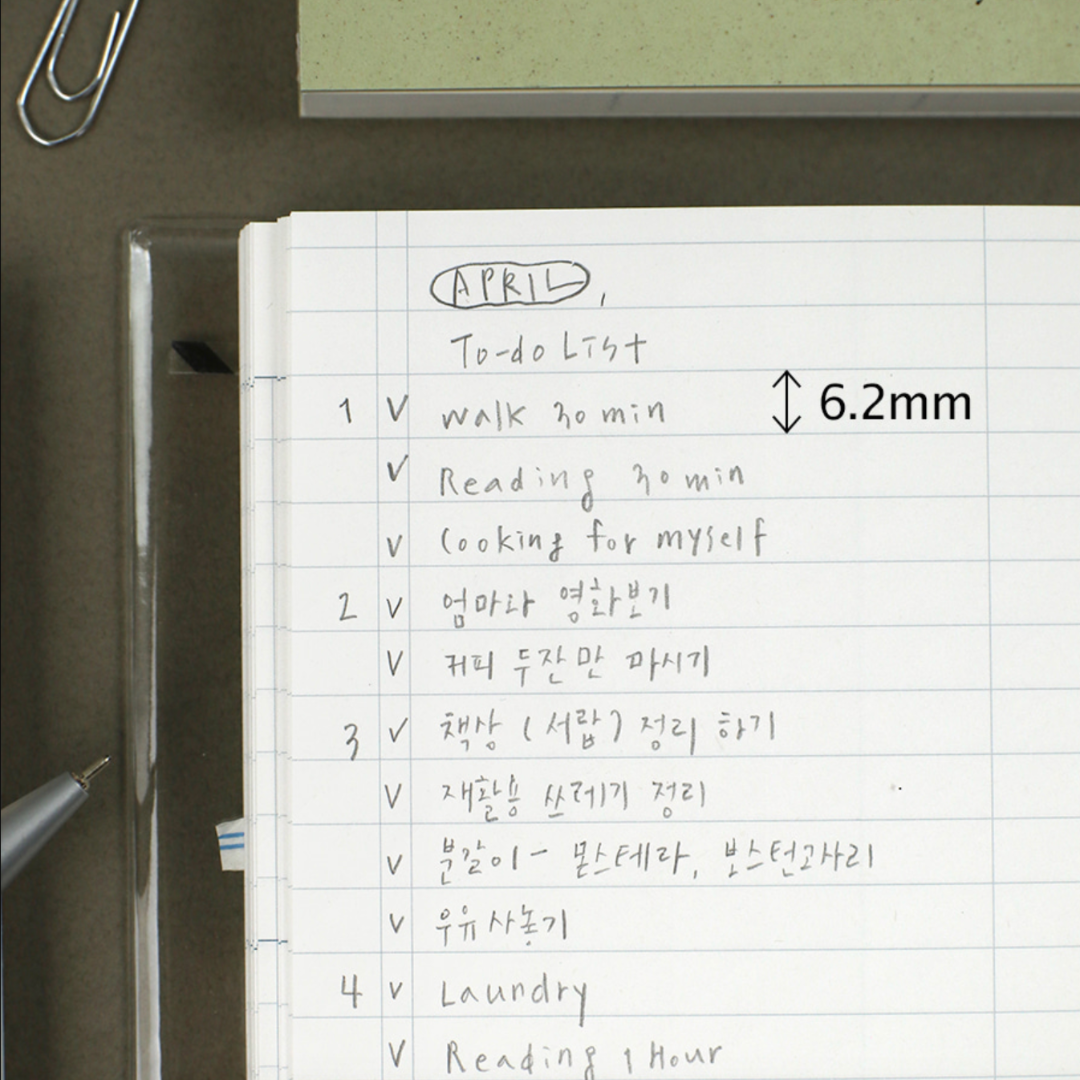 APRIL,
To-do List
1 V Walk 30 min
6.2mm
V Reading 30 min
V Cooking for myself
2 V 엄마와 영화보기
V 커피 두잔만 마시기
3 V 책상 (서랍) 정리 하기
V 재활용 쓰레기 정리
V 분갈이 - 몬스테라, 보스턴고사리
V 우유 사놓기
4 V Laundry
V Reading 1 Hour